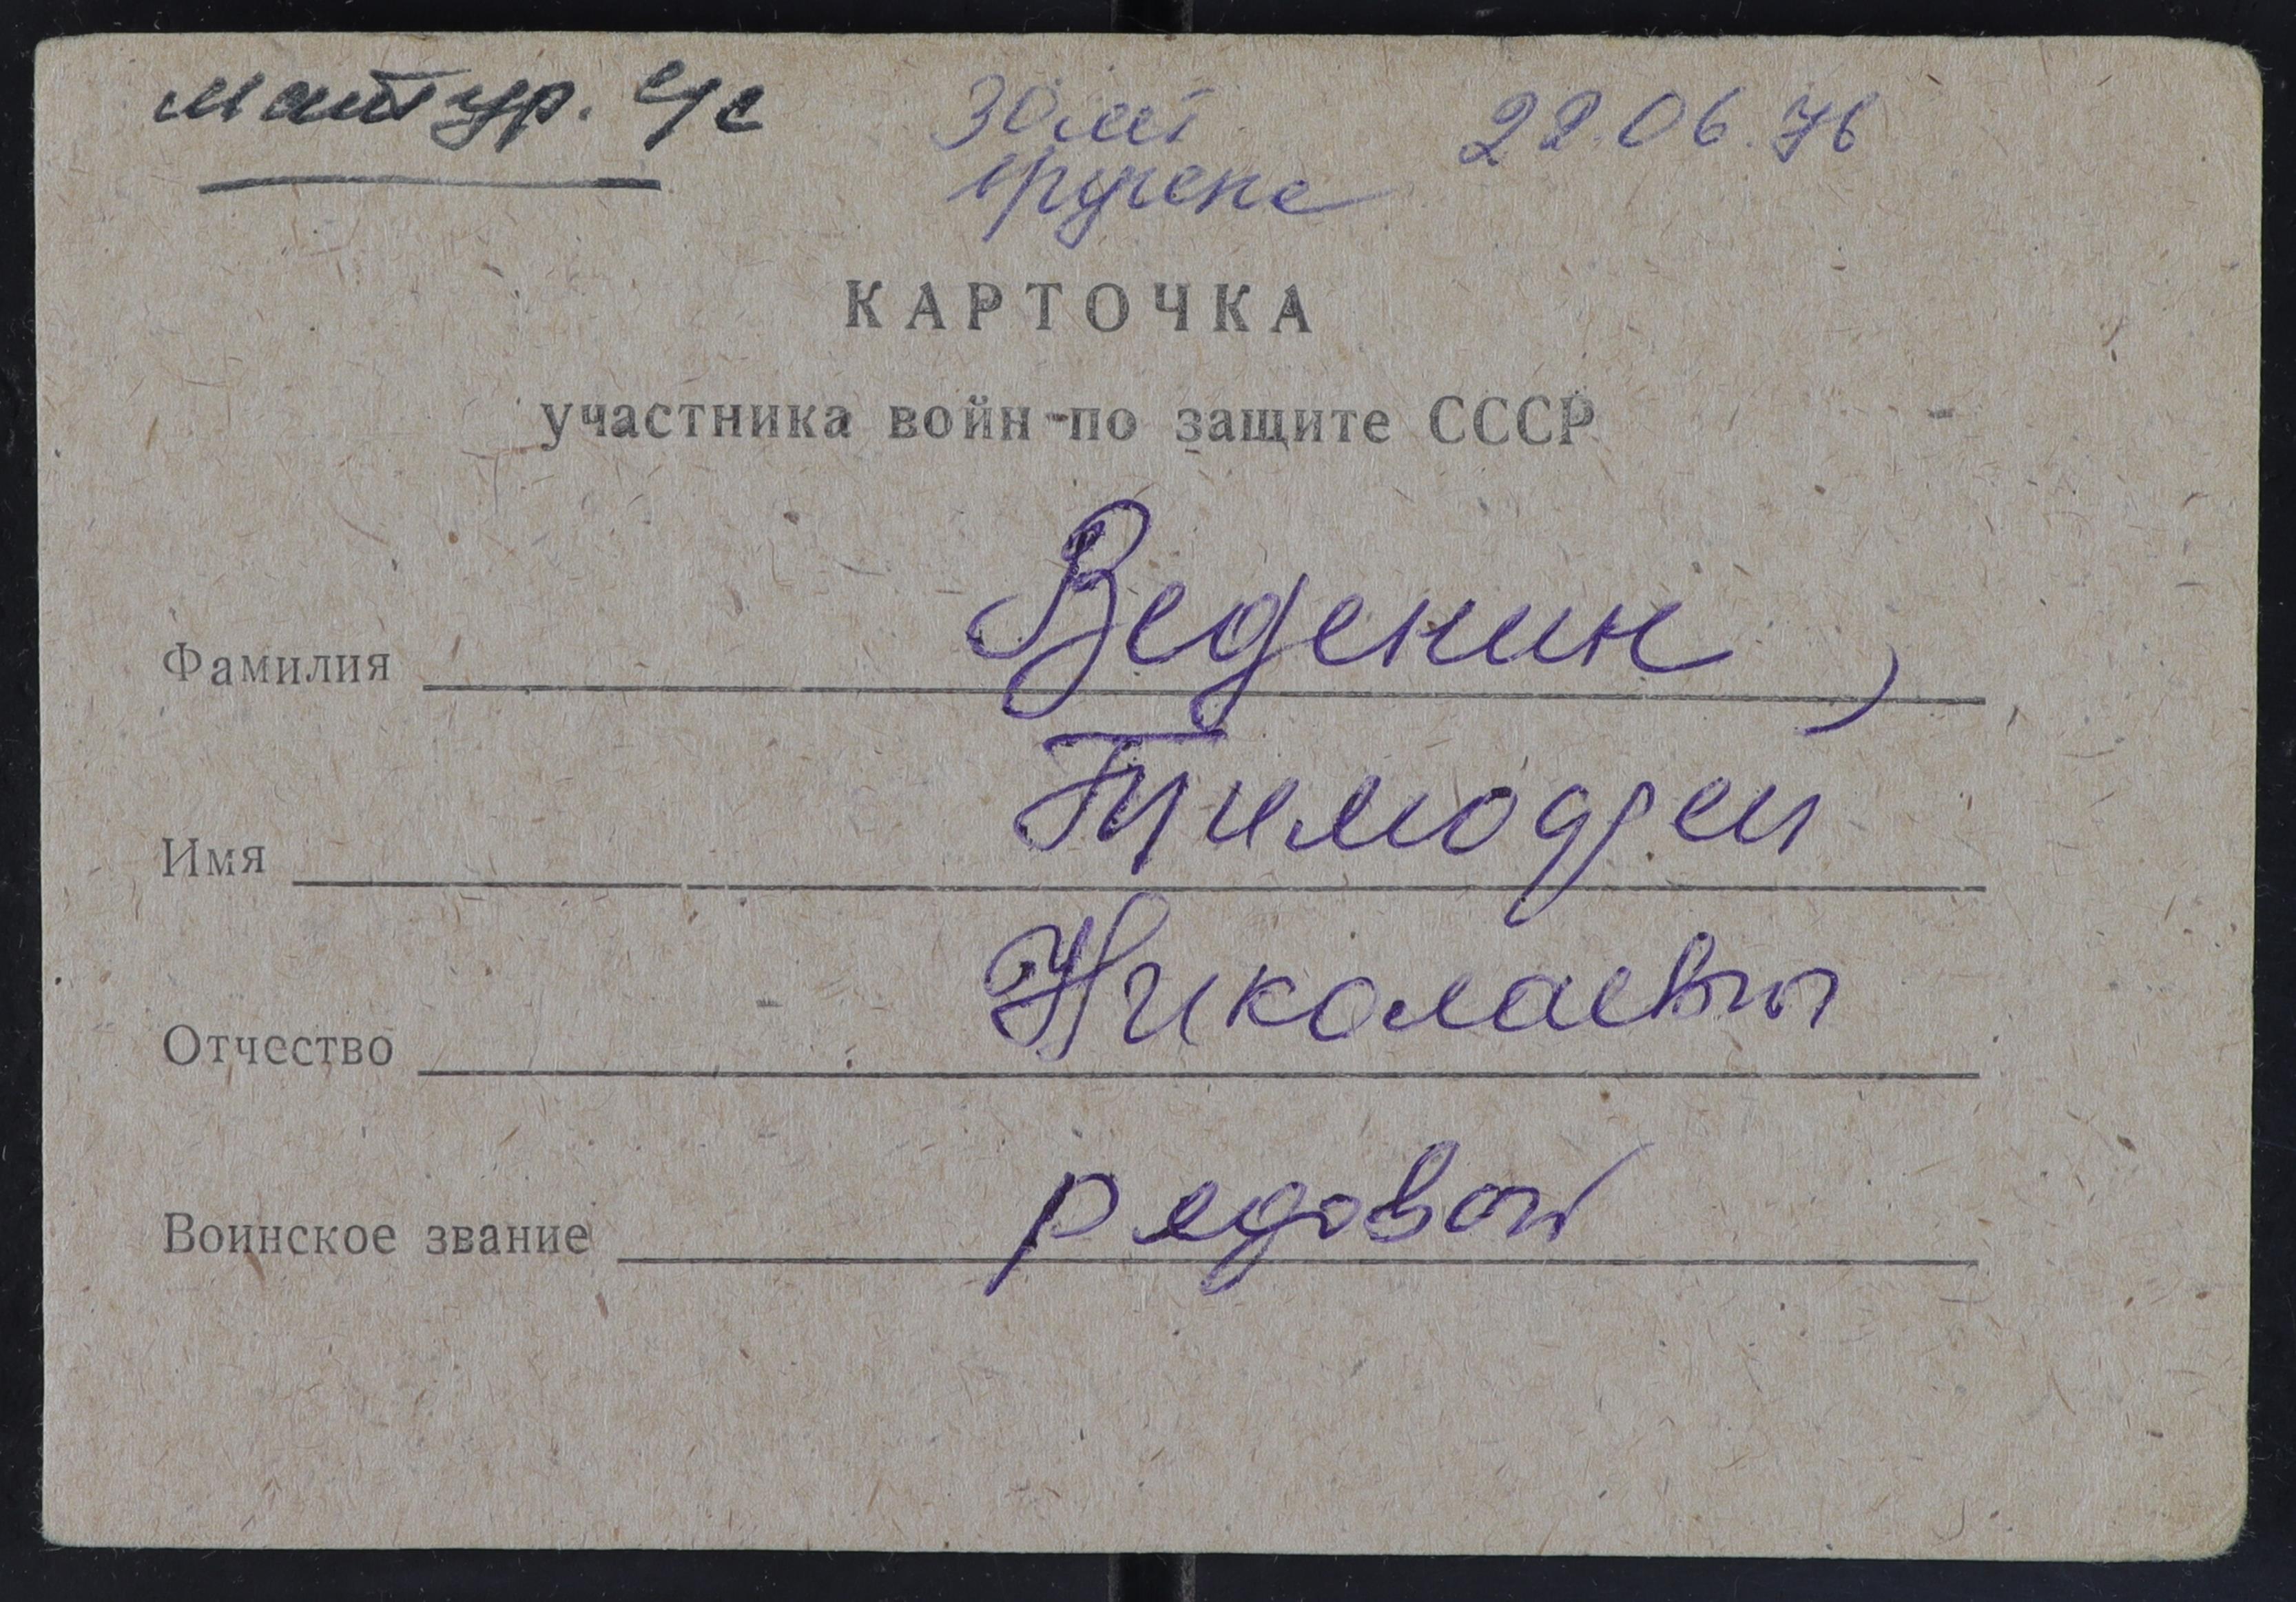 Матур. с/с
30 лет
вручена 22.06.76
КАРТОЧКА
участника войн по защите СССР
Фамилия Веденин,
Имя Тимофей
Отчество Николаевич
Воинское звание рядовой